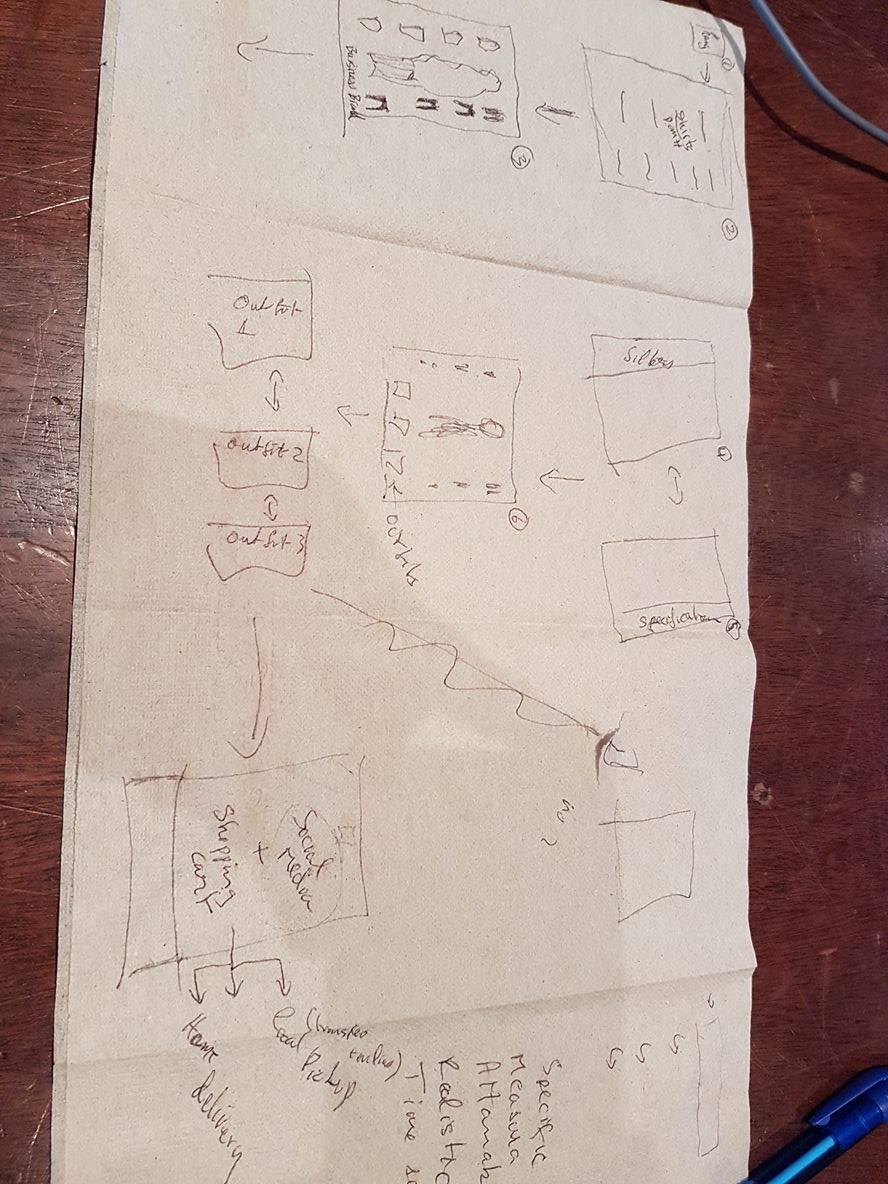 1
2
shirts
pant
3
Business Brand
4
5
specification
6
outfits
outfit
1
outfit 2
outfit 3
Social
Media
+
Shopping
cart
Pickup
Home Delivery
Specific
Measura
Attanab
Realistic
Time sc